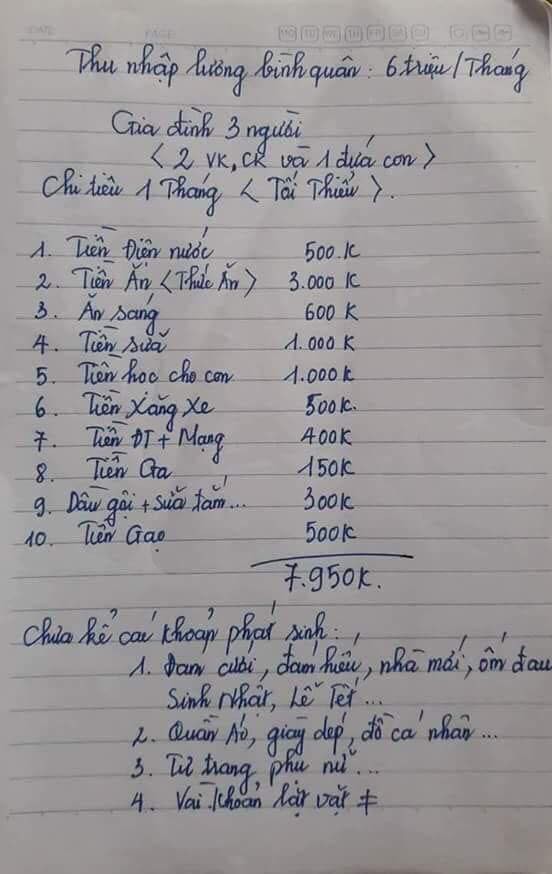 DATE PAGE MO TU WE TH FR SA SU
Thu nhập lương bình quân: 6 triệu/Tháng
Gia đình 3 người
< 2 VK, CK và 1 đứa con >
Chi tiêu 1 Tháng < Tối Thiểu >.
1. Tiền Điện nước 500.K
2. Tiền Ăn <Thức Ăn> 3.000 K
3. Ăn sáng 600 K
4. Tiền sữa 1.000 K
5. Tiền học cho con 1.000 K
6. Tiền Xăng Xe 500K.
7. Tiền ĐT + Mạng 400K
8. Tiền Ga 150K
9. Dầu gội + sữa tắm... 300K
10. Tiền Gạo 500K
7.950K.
Chưa kể các khoản phát sinh:
1. Đám cưới, đám hiếu, nhà mới, ốm đau
Sinh Nhật, Lễ Tết...
2. Quần Áo, giày dép, đồ cá nhân...
3. Tư trang phụ nữ...
4. Vài Khoản lặt vặt ≠